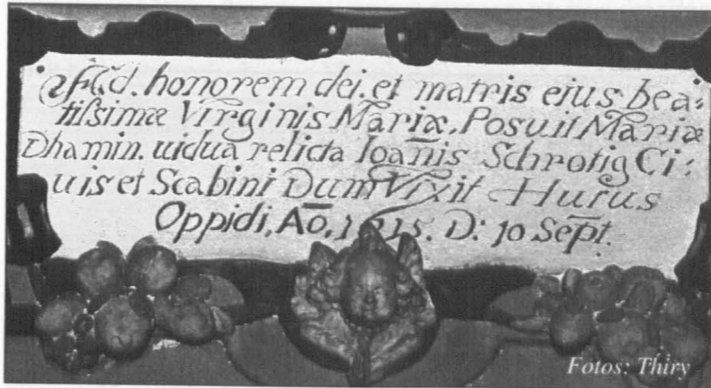 Ad. honorem dei. et matris eius bea:
tissimæ Virginis Mariæ. Posuit Mariæ
Dhamin. uidua relicta Ioan̄is Schrotig Ci:
uis et Scabini Dum Vixit Huius
Oppidi, Aō. D: 10 Sept.
Fotos: Thiry